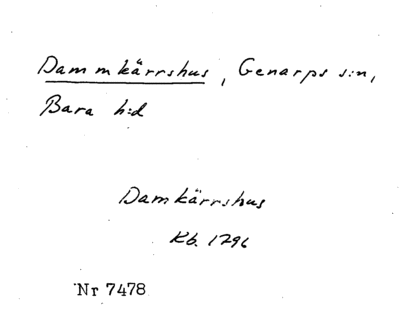 Dammkärrshus, Genarps s:n,
Bara h:d
Damkärrshus
Kb. 1796
Nr 7478